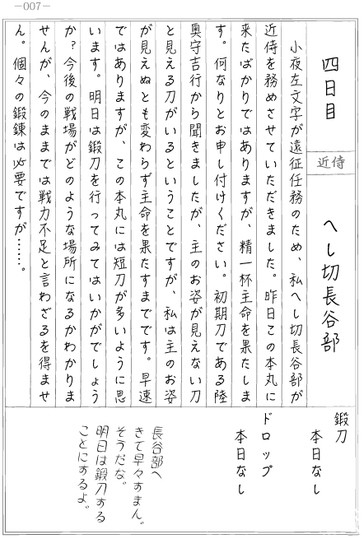 —007—
四日目
近侍
へし切長谷部
小夜左文字が遠征任務のため、私へし切長谷部が
近侍を務めさせていただきました。昨日この本丸に
来たばかりではありますが、精一杯主命を果たしま
す。何なりとお申し付けください。初期刀である陸
奥守吉行から聞きましたが、主のお姿が見えない刀
と見える刀がいるということですが、私は主のお姿
が見えぬとも変わらず主命を果たすまでです。早速
ではありますが、この本丸には短刀が多いように思
います。明日は鍛刀を行ってみてはいかがでしょう
か？今後の戦場がどのような場所になるかわかりま
せんが、今のままでは戦力不足と言わざるを得ませ
ん。個々の鍛錬は必要ですが……。
鍛刀
本日なし
ドロップ
本日なし
長谷部へ
きて早々すまん。
そうだな。
明日は鍛刀する
ことにするよ。